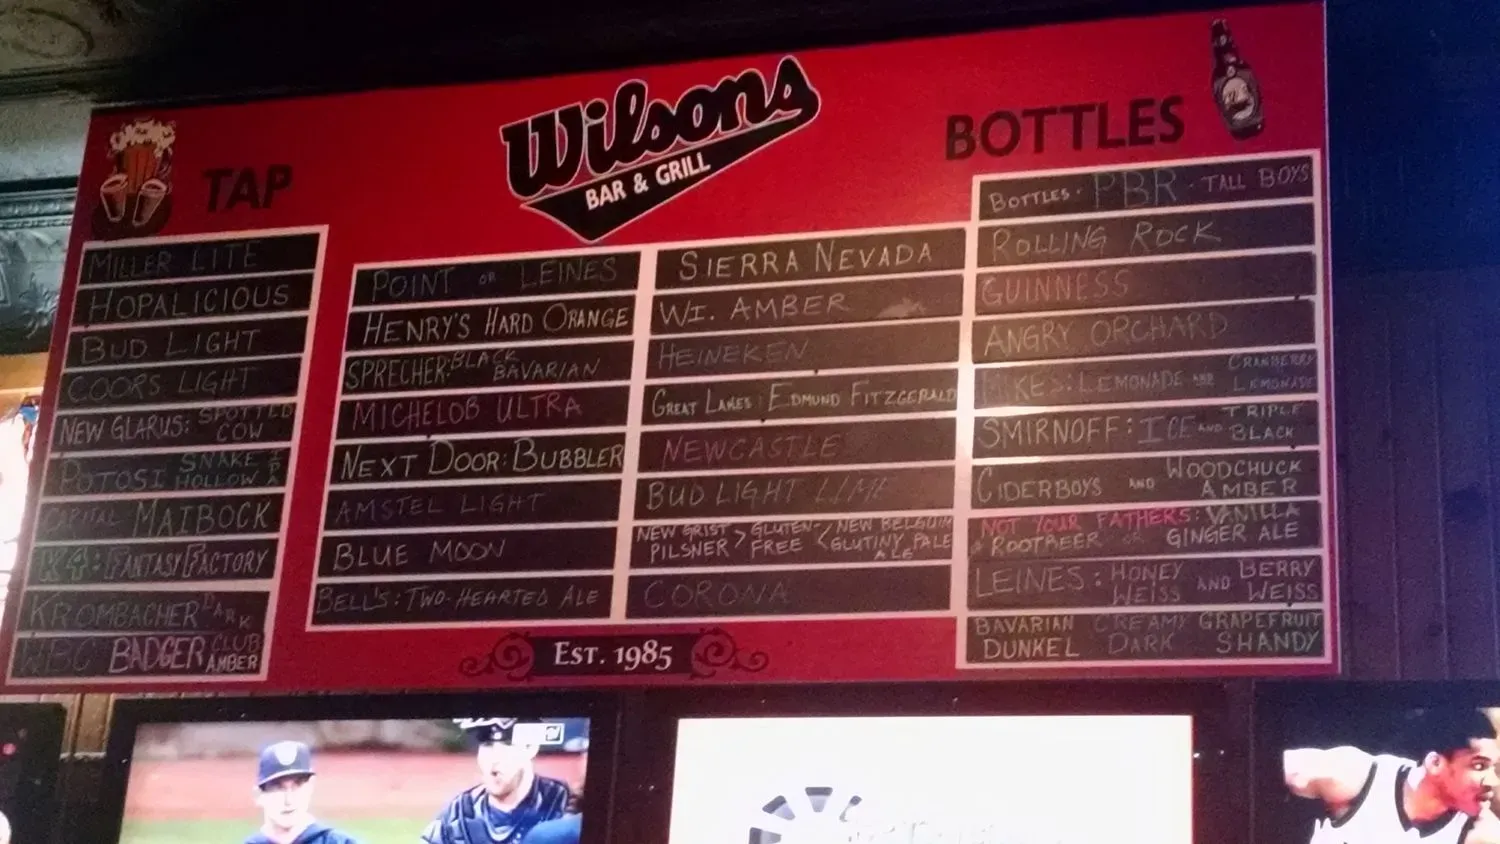 Wilsons
BAR & GRILL
TAP
MILLER LITE
HOPALICIOUS
BUD LIGHT
COORS LIGHT
NEW GLARUS: SPOTTED COW
POTOSI SNAKE HOLLOW IPA
CAPITAL MAIBOCK
K4: FANTASY FACTORY
KROMBACHER DARK
WBC BADGER CLUB AMBER
POINT OR LEINES
HENRY'S HARD ORANGE
SPRECHER: BLACK BAVARIAN
MICHELOB ULTRA
NEXT DOOR: BUBBLER
AMSTEL LIGHT
BLUE MOON
BELL'S: TWO-HEARTED ALE
SIERRA NEVADA
WI. AMBER
HEINEKEN
GREAT LAKES: EDMUND FITZGERALD
NEWCASTLE
BUD LIGHT LIME
NEW GRIST PILSNER > GLUTEN-FREE < NEW BELGIUM GLUTINY PALE ALE
CORONA
BOTTLES
BOTTLES · PBR · TALL BOYS
ROLLING ROCK
GUINNESS
ANGRY ORCHARD
MIKES: LEMONADE AND CRANBERRY LEMONADE
SMIRNOFF: ICE AND TRIPLE BLACK
CIDERBOYS AND WOODCHUCK AMBER
NOT YOUR FATHERS: VANILLA
ROOTBEER OR GINGER ALE
LEINES: HONEY WEISS AND BERRY WEISS
BAVARIAN DUNKEL CREAMY DARK GRAPEFRUIT SHANDY
EST. 1985